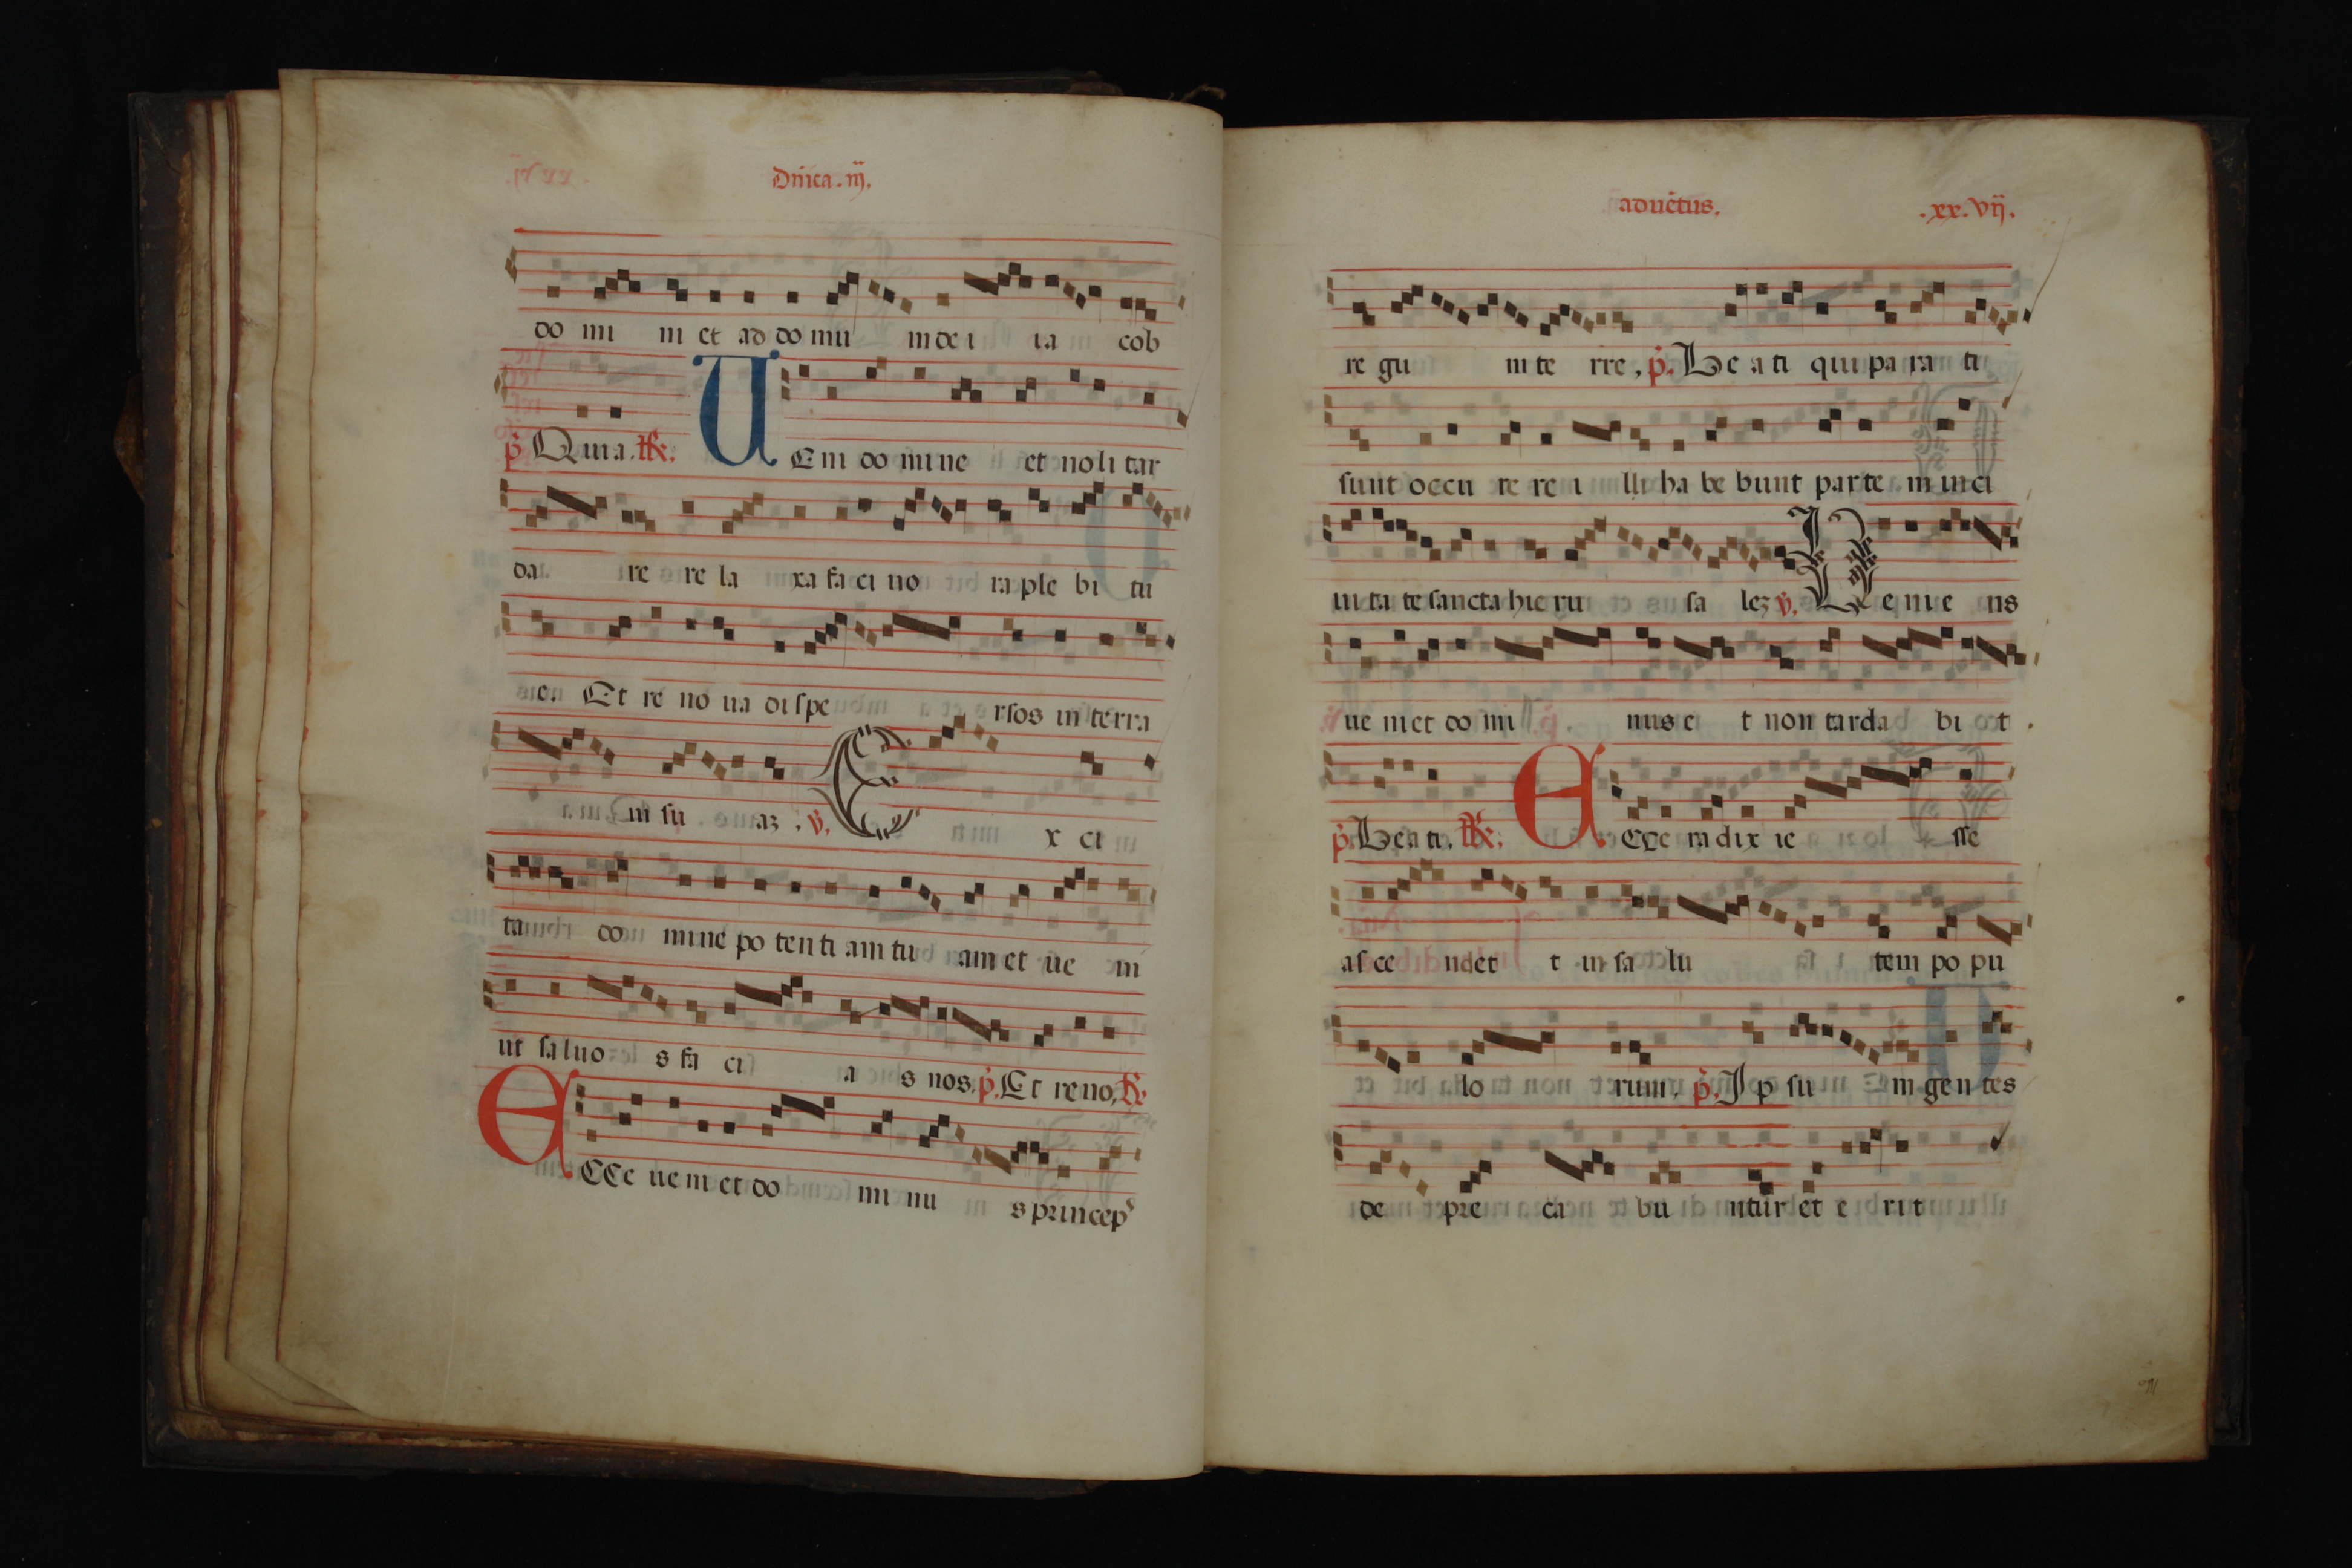 Dn̄ica. iij.
do mi ni et ad do mū m dei ia cob
p̄. Quia. R̄.
U Eni do mine et noli tar
da re re la xa fa ci no ra ple bi tu
e. Et re no ua dispe rsos in terra
m su aꝫ. v̄. E x ci
ta do mine po ten ti am tu am et ue ni
ut saluo s fa ci a s nos. p̄. Et reno. R̄.
E CCe ueniet do mi nu s princeps
aduētus. .xx.vij.
re gū m te rre, p̄. Be a ti qui para ti
sunt occu re re i lli ha be bunt parte m in ci
uita te sancta hieru sa leꝫ v̄. Ue nie ns
ue niet do mi nus e t non tarda bi t.
p̄. Beati. R̄. E CCe radix ie sse
as ce ndet t in sa lu tem po pu
lo rum, p̄. Ip su m gen tes
de pre ca bu ntur et e rit